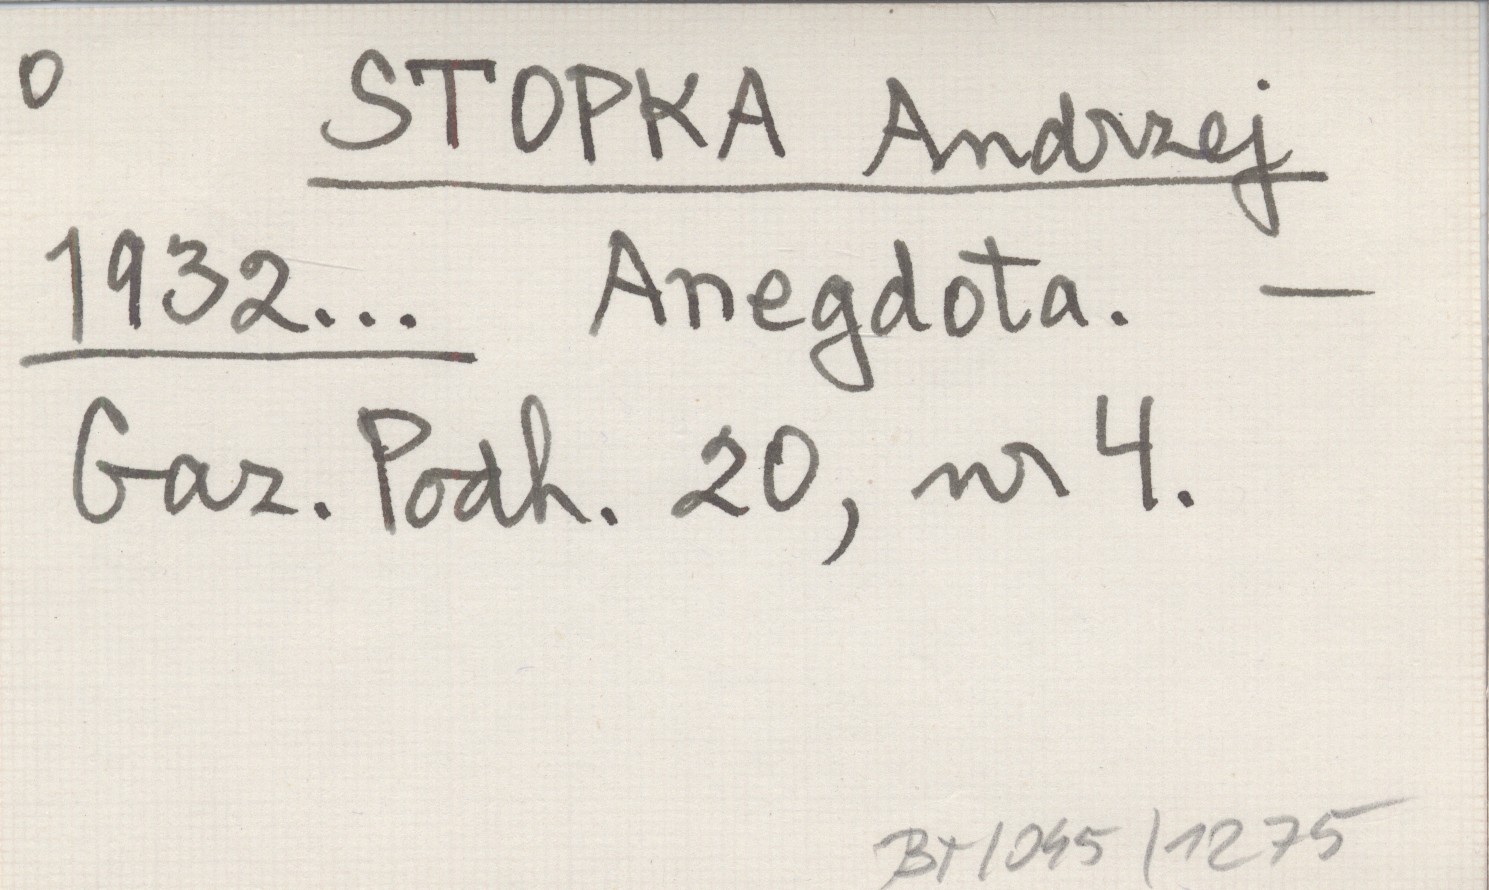 o STOPKA Andrzej
1932... Anegdota. —
Gaz. Podh. 20, nr 4.
BT/045/1275